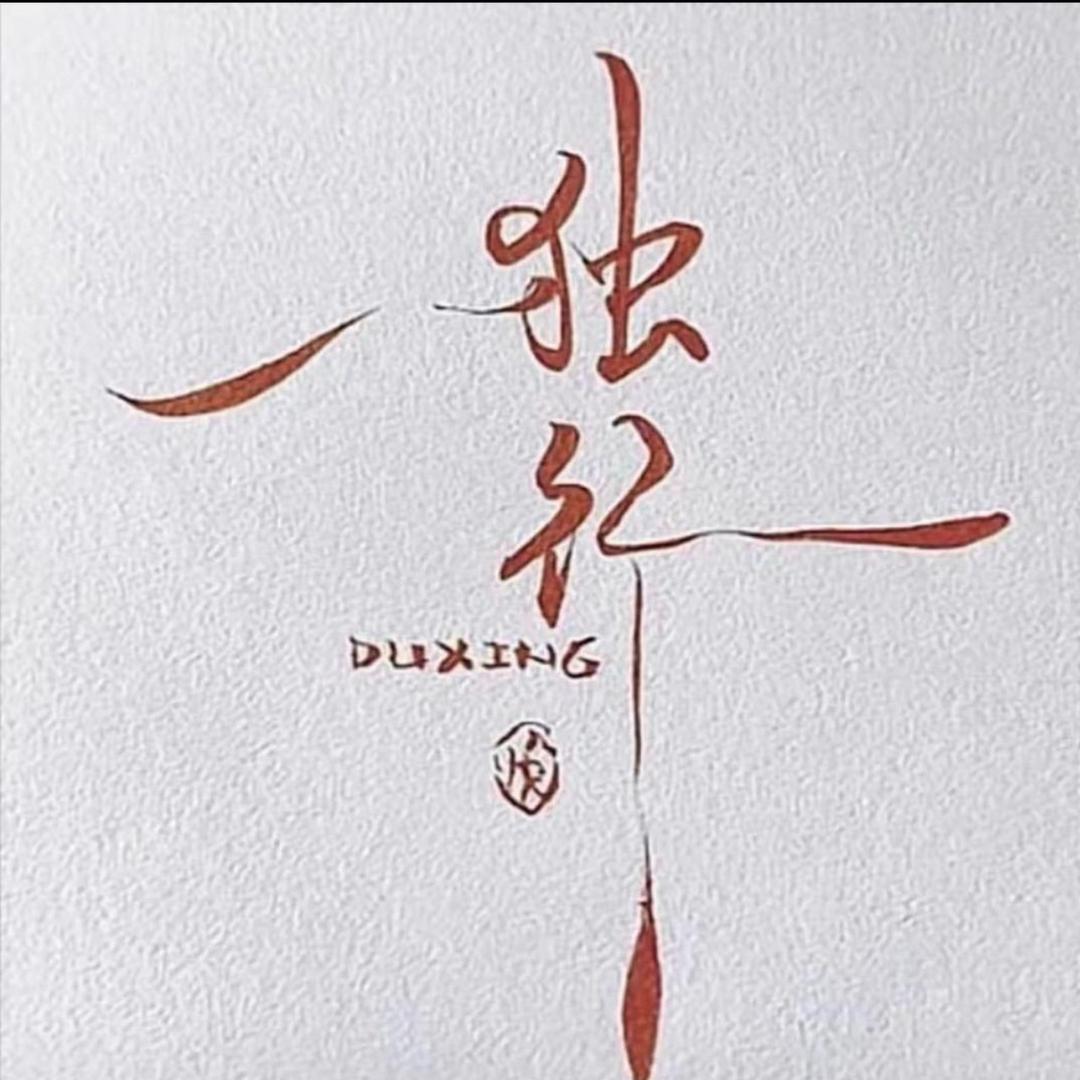 独
行
DUXING